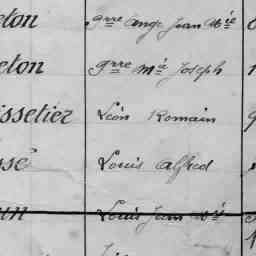 eton g^rre Ange Jean M^ie
eton g^rre M^ie Joseph
issetier Léon Romain
ssé Louis Alfred
un Louis Jean M^ie